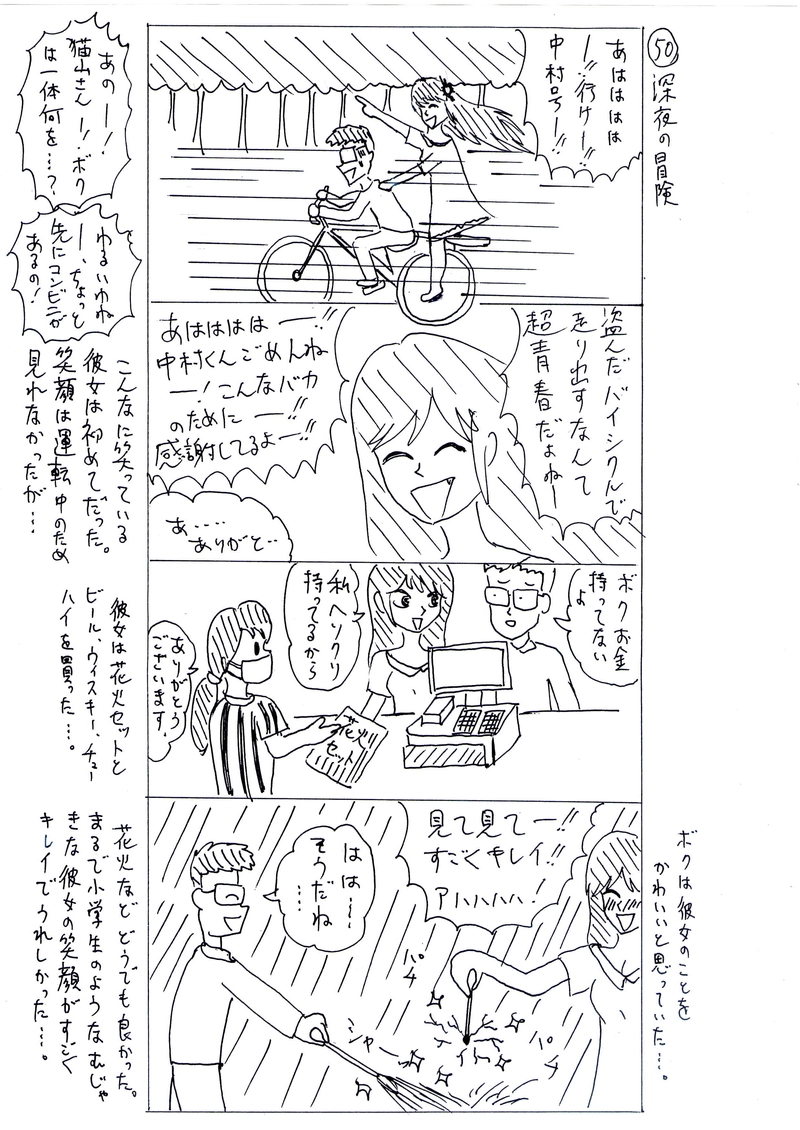 ㊿ 深夜の冒険
あはははは
ー!!行けー!!
中村号ー!!
あのー!
猫山さんー!・ボク
は一体何を…?
ゆるいわね
ー、ちょっと
先にコンビニが
あるの!
盗んだバイシクルで
走り出すなんて
超青春だよねー
あはははーー!!
中村くんごめんね
ー!こんなバカ
のためにー!!
感謝してるよー!!
あ‥‥
ありがと…
こんなに笑っている
彼女は初めてだった。
笑顔は運転中のため
見れなかったが…
ボクお金
持ってない
よ
私ヘソクリ
持ってるから
花火
セット
ありがとう
ございます。
彼女は花火セットと
ビール、ウィスキー、チュー
ハイを買った…。
ボクは彼女のことを
かわいいと思っていた…。
見て見てー!!
すごくキレイ!!
アハハハハ!
はは…
そうだね
…
パチ
パチ
シャー
花火などどうでも良かった。
まるで小学生のようなむじゃ
きな彼女の笑顔がすごく
キレイでうれしかった…。